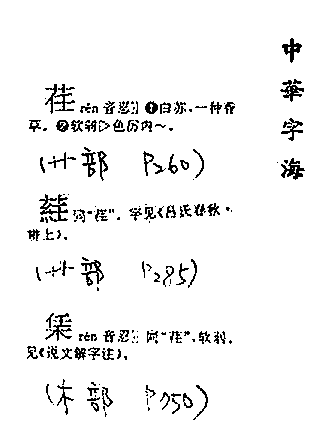 中華字海
荏 rěn 音忍 ❶白苏,一种香
草。❷软弱▷色厉内～。
(艹部 P260)
同“荏”。字见《吕氏春秋·
(艹部 P285)
栠 rěn 音忍 同“荏”,软弱,
见《说文解字注》。
(木部 P750)